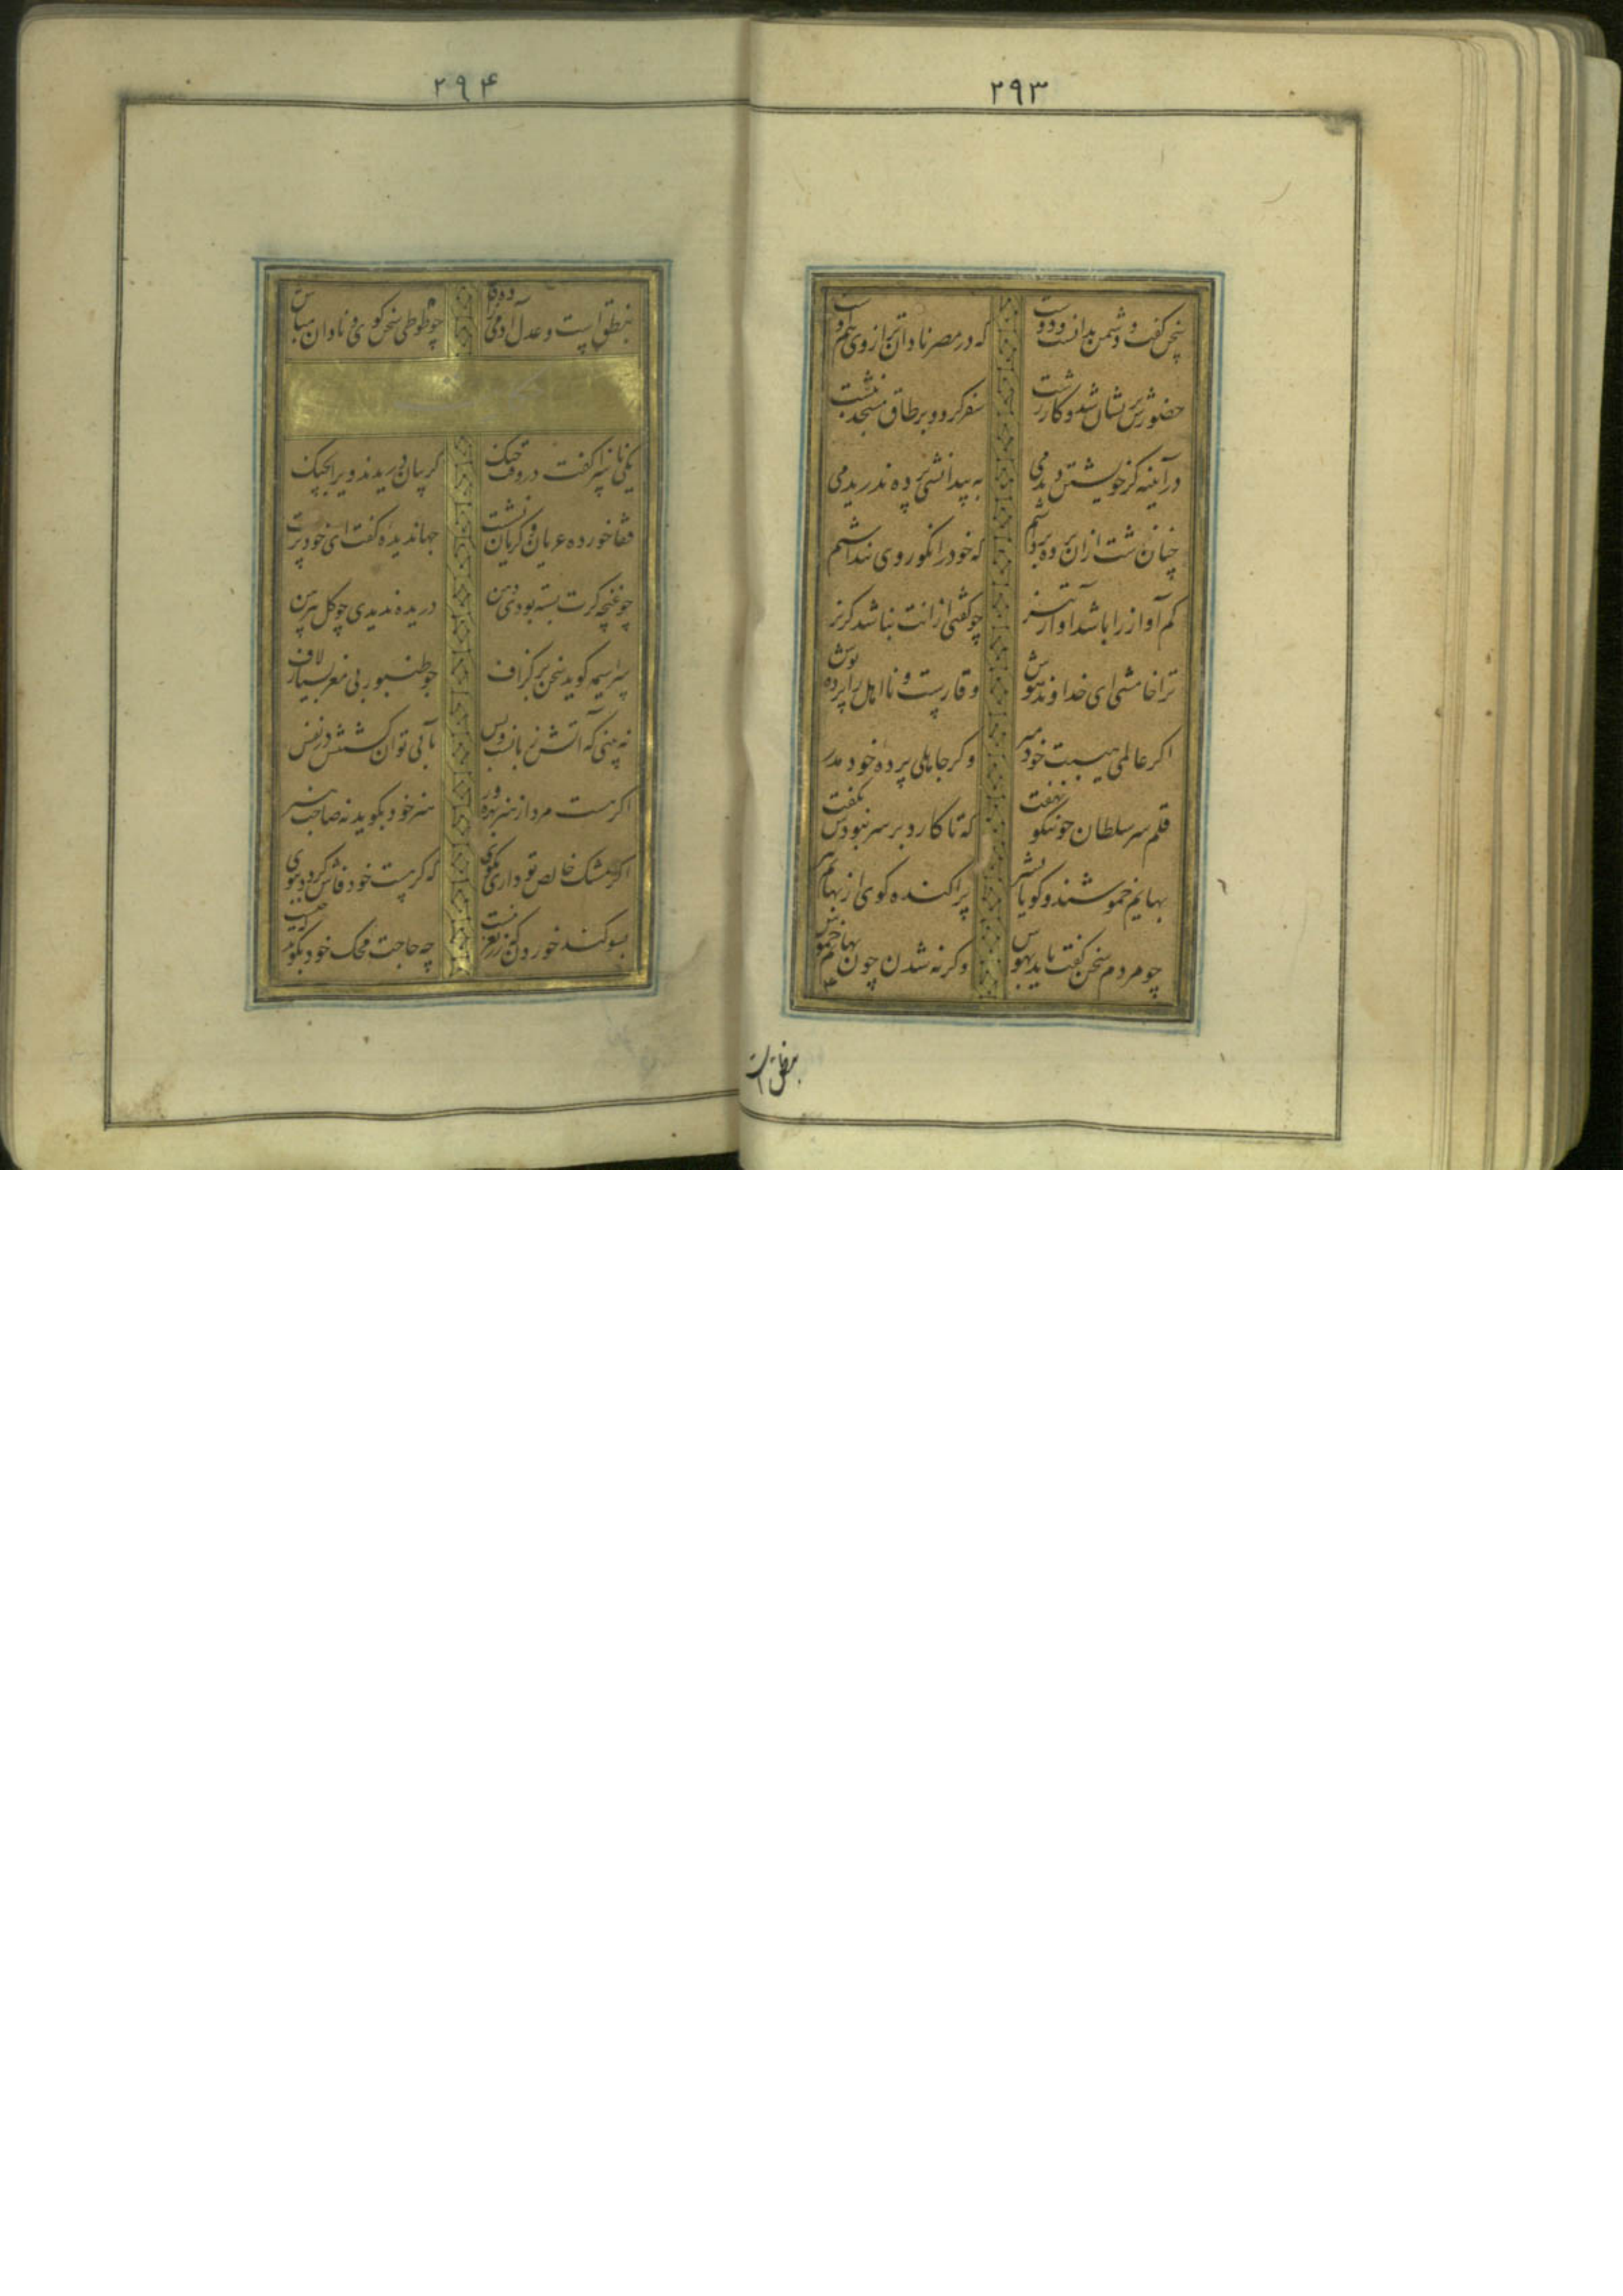 ۲۹۳
سخن گفت و دشمن بدانست و دوست که در مصر نادان تر از وی هم اوست
حضورش پریشان شد و کار زشت سفر کرد و بر طاق مسجد نبشت
در آیینه گر خویشتن دیدمی به بیدانشی پرده ندریدمی
چنان زشت ازان پرده برداشتم که خود را نکو روی پنداشتم
کم آواز را باشد آوازه تیز چو گفتی ازانت نباشد گریز
ترا خامشی ای خداوند هوش وقارست و نااهل را پرده پوش
اگر عالمی هیبت خود مبر وگر جاهلی پرده خود مدر
قلم سر سلطان چو نیکو نهفت که تا کارد بر سر نبودش نگفت
بهایم خموشند و گویا بشر پراکنده گوی از بهایم بتر
چو مردم سخن گفت باید بهوش وگر نه شدن چون بهایم خموش
بنطق است
۲۹۴
بنطق است و عدل آدمی زاده فاش چو طوطی سخن گوی و نادان مباش
یکی ناسزا گفت در وقت جنگ گریبان دریدند ویرا بچنگ
قفا خورده عریان و گریان نشست جهاندیده گفت ای خود پرست
چو غنچه گرت بسته بودی دهن دریده ندیدی چو گل پیرهن
سراسیمه گوید سخن بر گزاف چو طنبور بی مغز بسیار لاف
نه بینی که آتش زبانست و بس بآبی توان کشتنش در نفس
اگر هست مرد از هنر بهره ور هنر خود بگوید نه صاحب هنر
اگر مشک خالص تو داری مگوی که گر هست خود فاش گردد ببوی
بسوگند خوردن که زر مغربیست چه حاجت محک خود بگوید که چیست